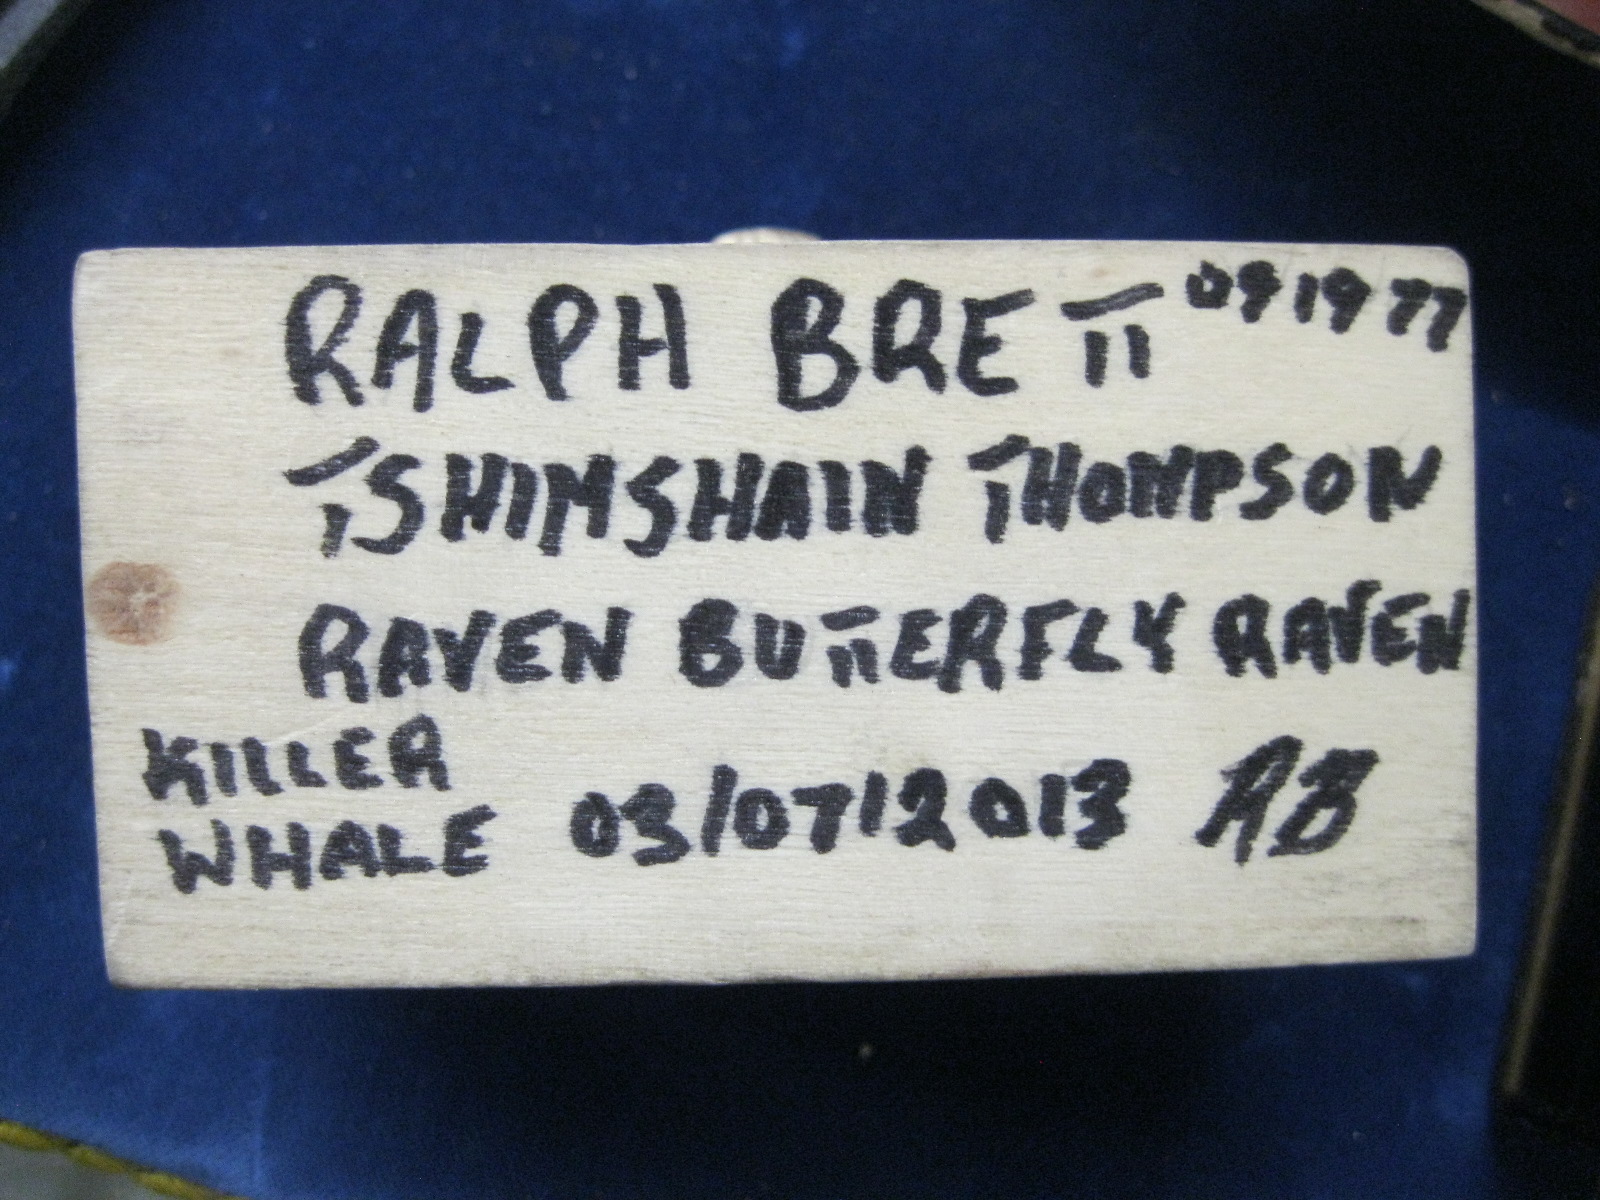 RALPH BRETT 091977
TSHIMSHAIN THOMPSON
RAVEN BUTTERFLY RAVEN
KILLER
WHALE 03/07/2013 RB